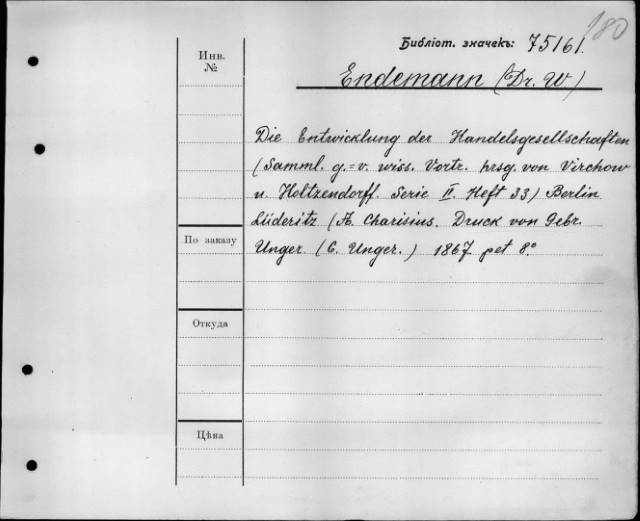 180
Библіот. значекъ: 75161.
Инв.
№
Endemann (Dr. W.)
Die Entwicklung der Handelsgesellschaften
(Samml. g.=v. wiss. Vortr. hrsg. von Virchow
u. Holtzendorff. Serie II. Heft 33) Berlin
Lüderitz (A. Charisius. Druck von Gebr.
Unger. (C. Unger.) 1867. pet 8°
По заказу
Откуда
Цѣна